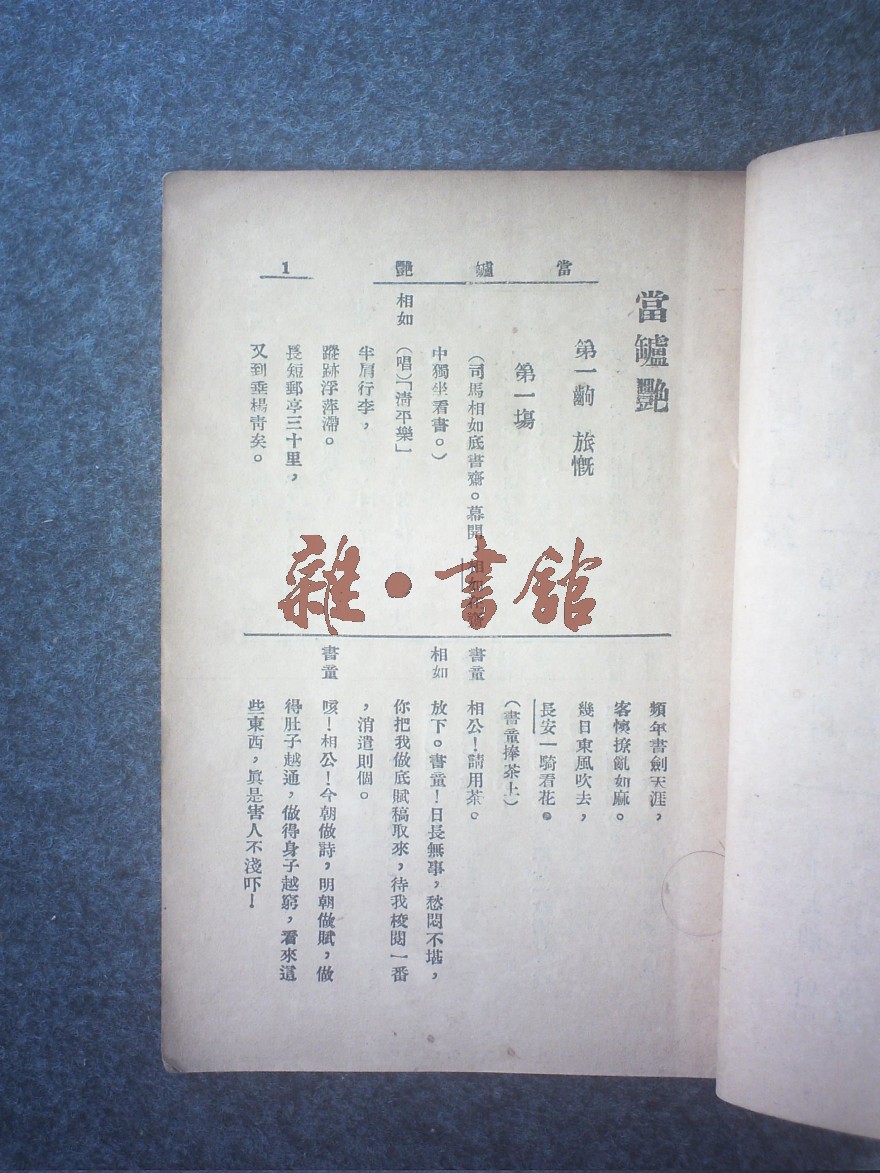 當罏艷
1
當罏艷
第一齣 旅慨
第一塲
（司馬相如底書齋。幕開
中獨坐看書。）
相如 （唱）「淸平樂」
半肩行李，
蹤跡浮萍滯。
長短郵亭三十里，
又到垂楊靑矣。
頻年書劍天涯，
客懊撩亂如麻。
幾日東風吹去，
長安一騎看花。
（書童捧茶上）
書童 相公！請用茶。
相如 放下。書童！日長無事，愁悶不堪，
你把我做底賦稿取來，待我校閱一番
，消遣則個。
書童 咳！相公！今朝做詩，明朝做賦，做
得肚子越通，做得身子越窮，看來這
些東西，眞是害人不淺吓！
雜·書館